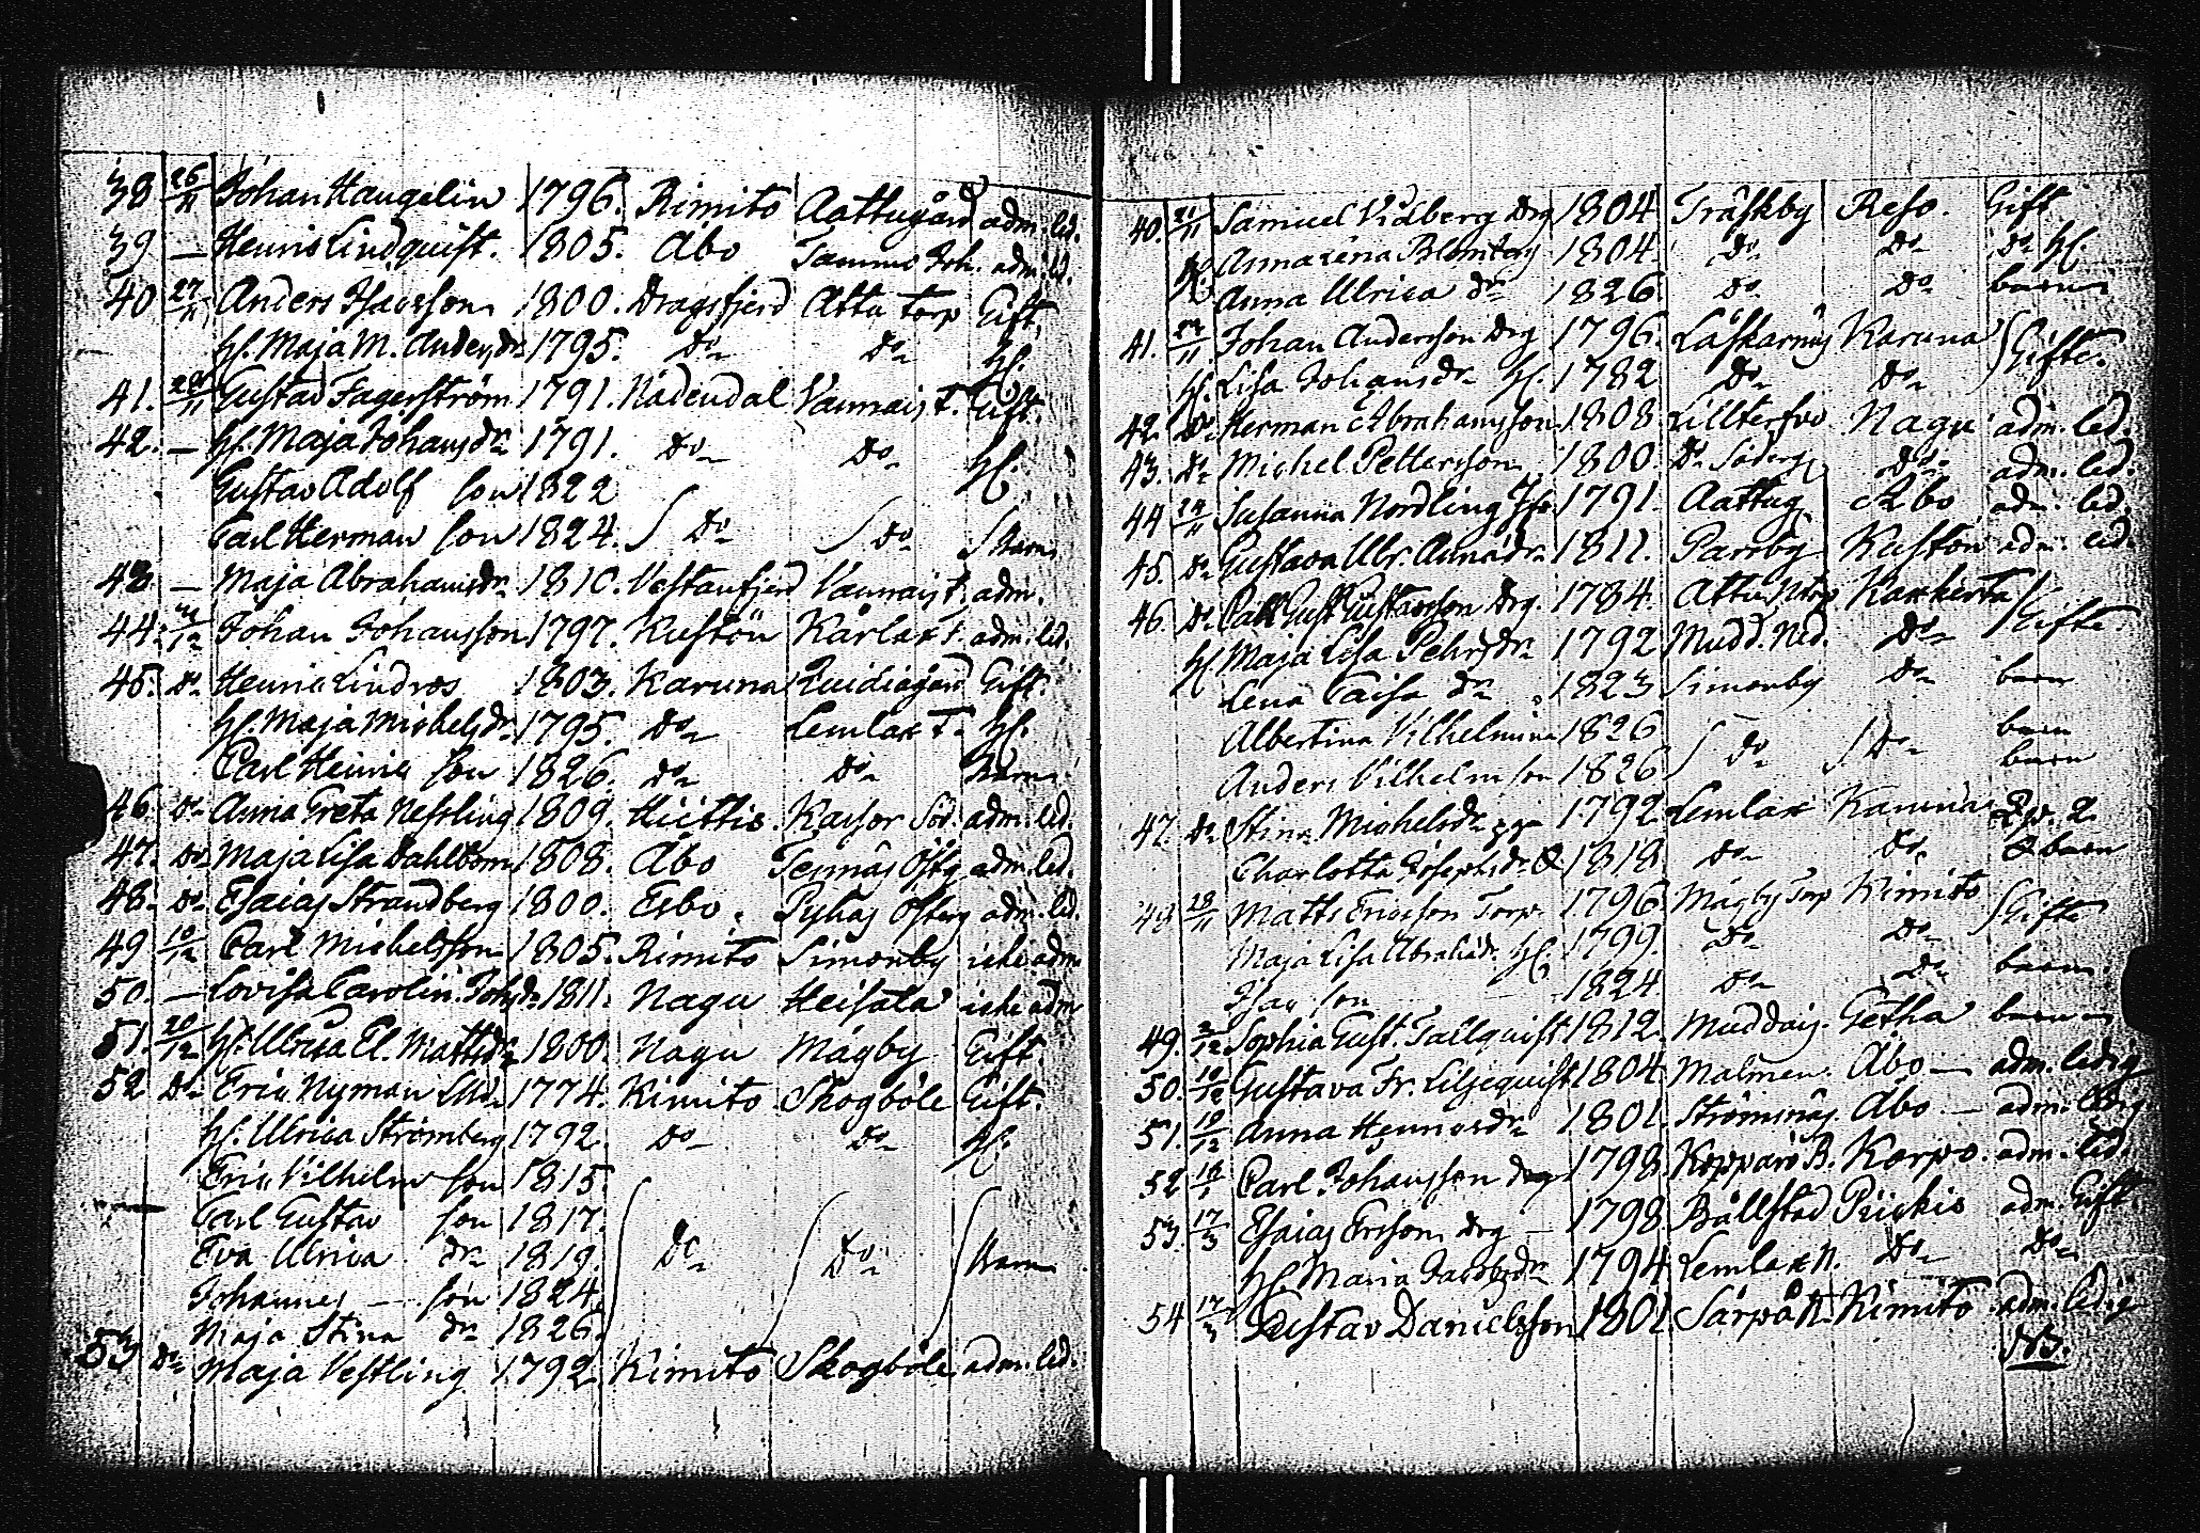 38 26/11 Johan Haugelin 1796. Rimito Aattugård adm. led.
39 — Henric Lindquist. 1805. Åbo Tammo Joh. adm. led.
40 27/11 Anders Isacsson 1800. Dragsfjerd Attu torp Gift.
h. Maja M. Andersdr 1795. Do Do h.
41. 28/11 Gustav Fagerström 1791. Nådendal Vannais T. Gift.
42. — h. Maja Johansdr 1791. Do Do h.
Gustav Adolf son 1822
Carl Herman son 1824. Do Do Barn
43 — Maja Abrahamsdr 1810. Vestanfjerd Vannais t. adm.
44. Johan Johansson 1797. Kustön Kårlax t. adm. led.
45. Do Henric Lindros 1803. Karuna Quidiagård Gift.
h. Maja Michelsdr 1795. Do Lemlax T. h.
Carl Henric son 1826. Do Do Barn
46. Do Anna Greta Nessling 1809. Hiittis. Kaisor Söd. adm. led.
47. Do Maja Lisa Dahlbom 1808. Åbo Tennäs Östg. adm. led.
48. Do Esaias Strandberg 1800. Esbo. Pyhas Österg adm. led.
49 10/12 Carl Michelsson 1805. Rimito Simonby icke adm
50. — Lovisa Carolin. Johsdr 1811. Nagu Heisala icke adm
51. 20/12 h. Ulrica El. Mattsdr 1800. Nagu Mågby Gift.
52 Do Eric Nyman 1774. Kimito Skogböle Gift.
h. Ulrica Strömberg 1792. Do Do h.
Eric Vilhelm son 1815
Carl Gustav son 1817.
Eva Ulrica dr 1819. Do Do Barn
Johannes — son 1824.
Maja Stina dr 1826.
53 Do Maja Vestling 1792 Kimito Skogböle adm. led.
40. 21/11 Samuel Vidberg Drg 1804 Träskby Reso. Gift
Do Anna Lena Blomberg 1804 Do Do Do h.
Anna Ulrica dr 1826 Do Do barn
41. 27/11 Johan Andersson Drg 1796. Läskarnäs Karuna Gifte.
h. Lisa Johansdr h. 1782 Do Do
42. Do Herman Abrahamsson 1808 Lilltervo Nagu adm. led.
43. Do Michel Pettersson 1800. Do Söderg Do adm. led.
44 24/11 Susanna Nordling 1791. Aattug Åbo adm. led.
45. Do Gustava Ulr. Annasdr 1811. Parsby Kustön adm. led.
46 Do Carl Gust Gustavsson Drg. 1784. Attu Karkerta
h. Maja Lisa Pehrsdr 1792 Mudd. Ned. Do Gifte
Lena Caisa dr 1823 Simonby Do barn
Albertina Vilhelmina 1826 barn
Anders Vilhelm son 1826 Do Do barn
47. Do Stina Michelsdr 1792 Lemlax Karuna
Charlotta Josephsdr 1818 Do Do barn
48 28/11 Matts Ericsson Torp. 1796 Mågby Torp Kimito Gifte
Maja Lisa Abrahadr. h. 1799. Do Do
Isac son 1824 Do Do barn.
49. 2/12 Sophia Gust. Tallquist 1812. Muddais. Getha barn
50. 10/12 Gustava Fr. Liljequist 1804 Malmen. Åbo — adm. ledig
51. 10/12 Anna Henricsdr 1801. Strömsnäs. Åbo. — adm. ledig.
52 18/1 Carl Johansson drg 1798. Kopparö B. Korpo. adm. led.
53. 17/3 Esaias Ersson drg — 1798 Bållstad Piickis adm. Gift
h. Maria Jacobsdr 1794 Lemlax N. Do Do
54 17/3 Gustav Danielsson 1801 Särpå N. Kimito adm. ledig
NB.